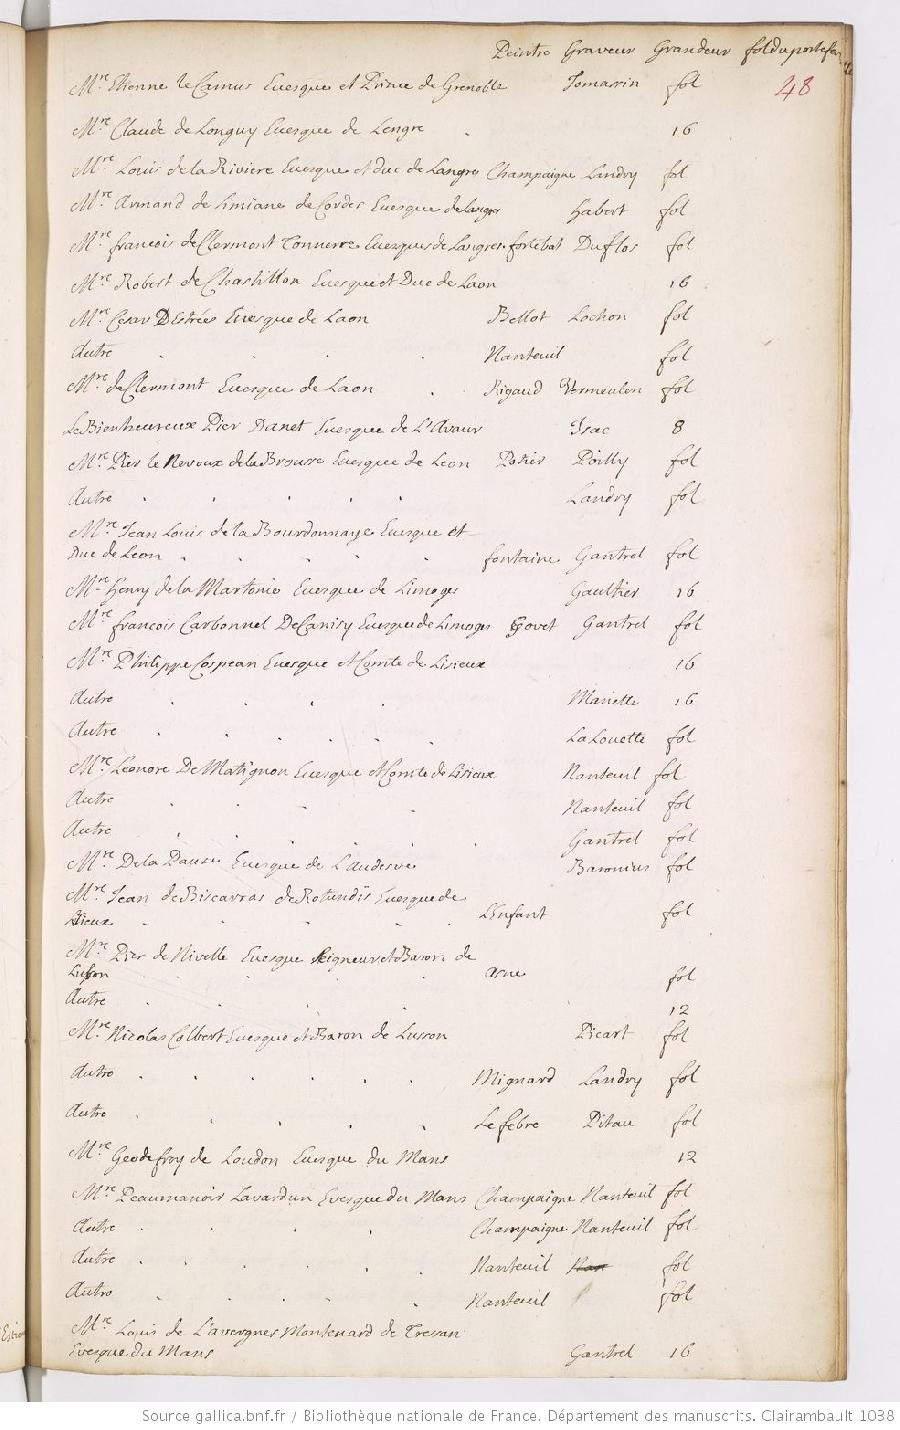 Peintre Graveur Grandeur fol du portefeu
48
Mre Etienne le Camus Euesque et Prince de Grenoble Tomassin fol
Mre Claude de Longuy Euesque de Lengre . 16
Mre Louis de la Riviere Euesque et duc de Langres Champaigne Landry fol
Mre Armand de Simiane de Gordes Euesque de langres Habert fol
Mre francois de Clermont Tonnerre Euesque de Langres fortebat Duflos fol
Mre Robert de Chastillon Euesque et Duc de Laon 16
Mre Cesar D'Estrées Euesque de Laon Bellot Lochon fol
Autre . . . . Nanteuil fol
Mre de Clermont Euesque de Laon . Rigaud Vermeulen fol
Le Bienheureux Pier Danet Euesque de L'Avaur Isac 8
Mre Pier le Neroux de la Brousse Euesque de Leon Potier Poilly fol
Autre . . . . . Landry fol
Mre Jean Louis de la Bourdonnaye Euesque et
Duc de Leon . . . . . fontaine Gantrel fol
Mre Henry de la Martonie Euesque de Limoges Gaultier 16
Mre francois Carbonnel De Canisy Euesque de Limoges Gantrel fol
Mre Philippe Cospean Euesque et Comte de Lisieux 16
Autre . . . . Mariette 16
Autre . . . . . La Louette fol
Mre Leonore De Matignon Euesque et Comte de Lisieux Nanteuil fol
Autre . . . . Nanteuil fol
Autre . . . . Gantrel fol
Mre De la Pause Euesque de Baronius fol
Mre Jean de Biscarras de Rotundis Euesque de
. . . . L'Enfant fol
Mre Pier de Nivelle Euesque Seigneur et Baron de
Lusson . . . . Asne fol
Autre . . . . 12
Mre Nicolas Colbert Euesque et Baron de Lusson Picart fol
Autre . . . . . . Mignard Landry fol
Autre . . . . . Le febre Pitau fol
Mre Geodefroy de Loudon Euesque du Mans 12
Mre Beaumanoir Lavardun Euesque du Mans Champaigne Nanteuil fol
Autre . . . Champaigne Nanteuil fol
Autre . . . . . . Nanteuil Nan fol
Autre . . . . . Nanteuil fol
Mre Louis de L'avergnes Montenard de Tressan
Euesque du Mans Gantrel 16
Source gallica.bnf.fr / Bibliothèque nationale de France. Département des manuscrits. Clairambault 1038